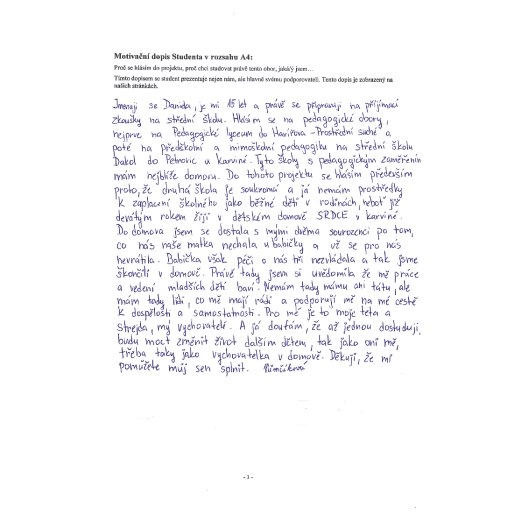 Motivační dopis Studenta v rozsahu A4:
Proč se hlásím do projektu, proč chci studovat právě tento obor, jaká/ý jsem…
Tímto dopisem se student prezentuje nejen nám, ale hlavně svému podporovateli. Tento dopis je zobrazený na
našich stránkách.
Jmenuji se Daniela, je mi 15 let a právě se připravuji na přijímací
zkoušky na střední školu. Hlásím se na pedagogické obory,
nejprve na Pedagogické lyceum do Havířova - Prostřední Suché a
poté na předškolní a mimoškolní pedagogiku na střední školu
Dakol do Petrovic u Karviné. Tyto školy s pedagogickým zaměřením
mám nejblíže domovu. Do tohoto projektu se hlásím především
proto, že druhá škola je soukromá a já nemám prostředky
k zaplacení školného jako běžné děti v rodinách, neboť již
devátým rokem žiji v dětském domově SRDCE v Karviné.
Do domova jsem se dostala s mými dvěma sourozenci po tom,
co nás naše matka nechala u babičky a už se pro nás
nevrátila. Babička však péči o nás tři nezvládala a tak jsme
skončili v domově. Právě tady jsem si uvědomila že mě práce
a vedení mladších dětí baví. Nemám tady mámu ani tátu, ale
mám tady lidi, co mě mají rádi a podporují mě na mé cestě
k dospělosti a samostatnosti. Pro mě je to moje teta a
strejda, mý vychovatelé. A já doufám, že až jednou dostuduji,
budu moct změnit život dalším dětem, tak jako oni mě,
třeba taky jako vychovatelka v domově. Děkuji, že mi
pomůžete můj sen splnit.
- 1 -